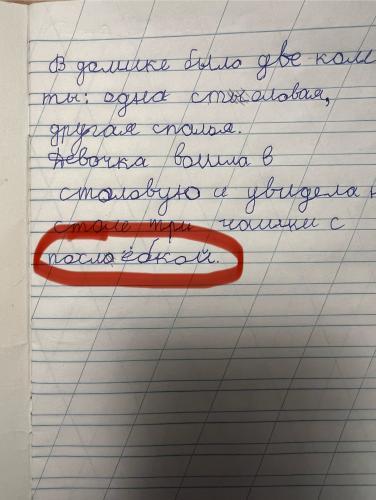 В домике было две ком
ты: одна столовая,
другая спалья.
Девочка вошла в
столовую и увидела н
столе три чашки с
послоёбкой.